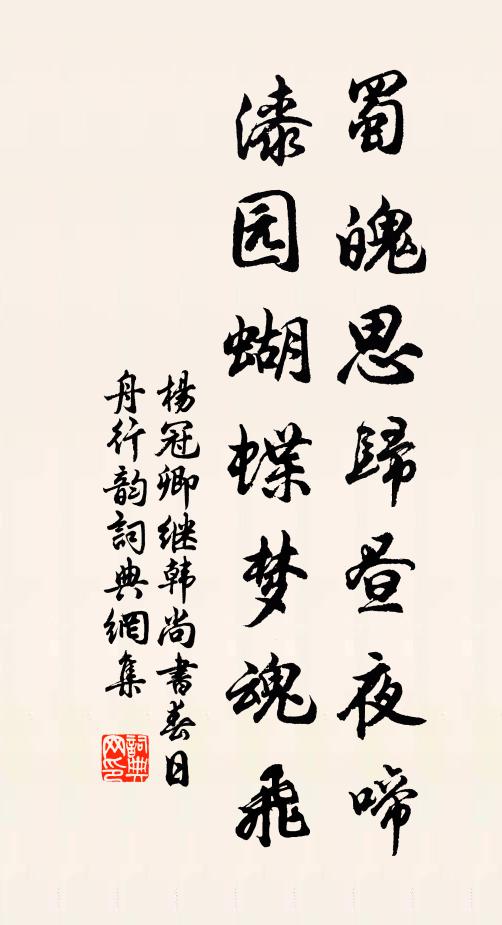 蜀魄思歸昼夜啼
漆园蝴蝶梦魂飛
楊冠卿继韩尚書春日
舟行韵詞典網集
詞典
网印